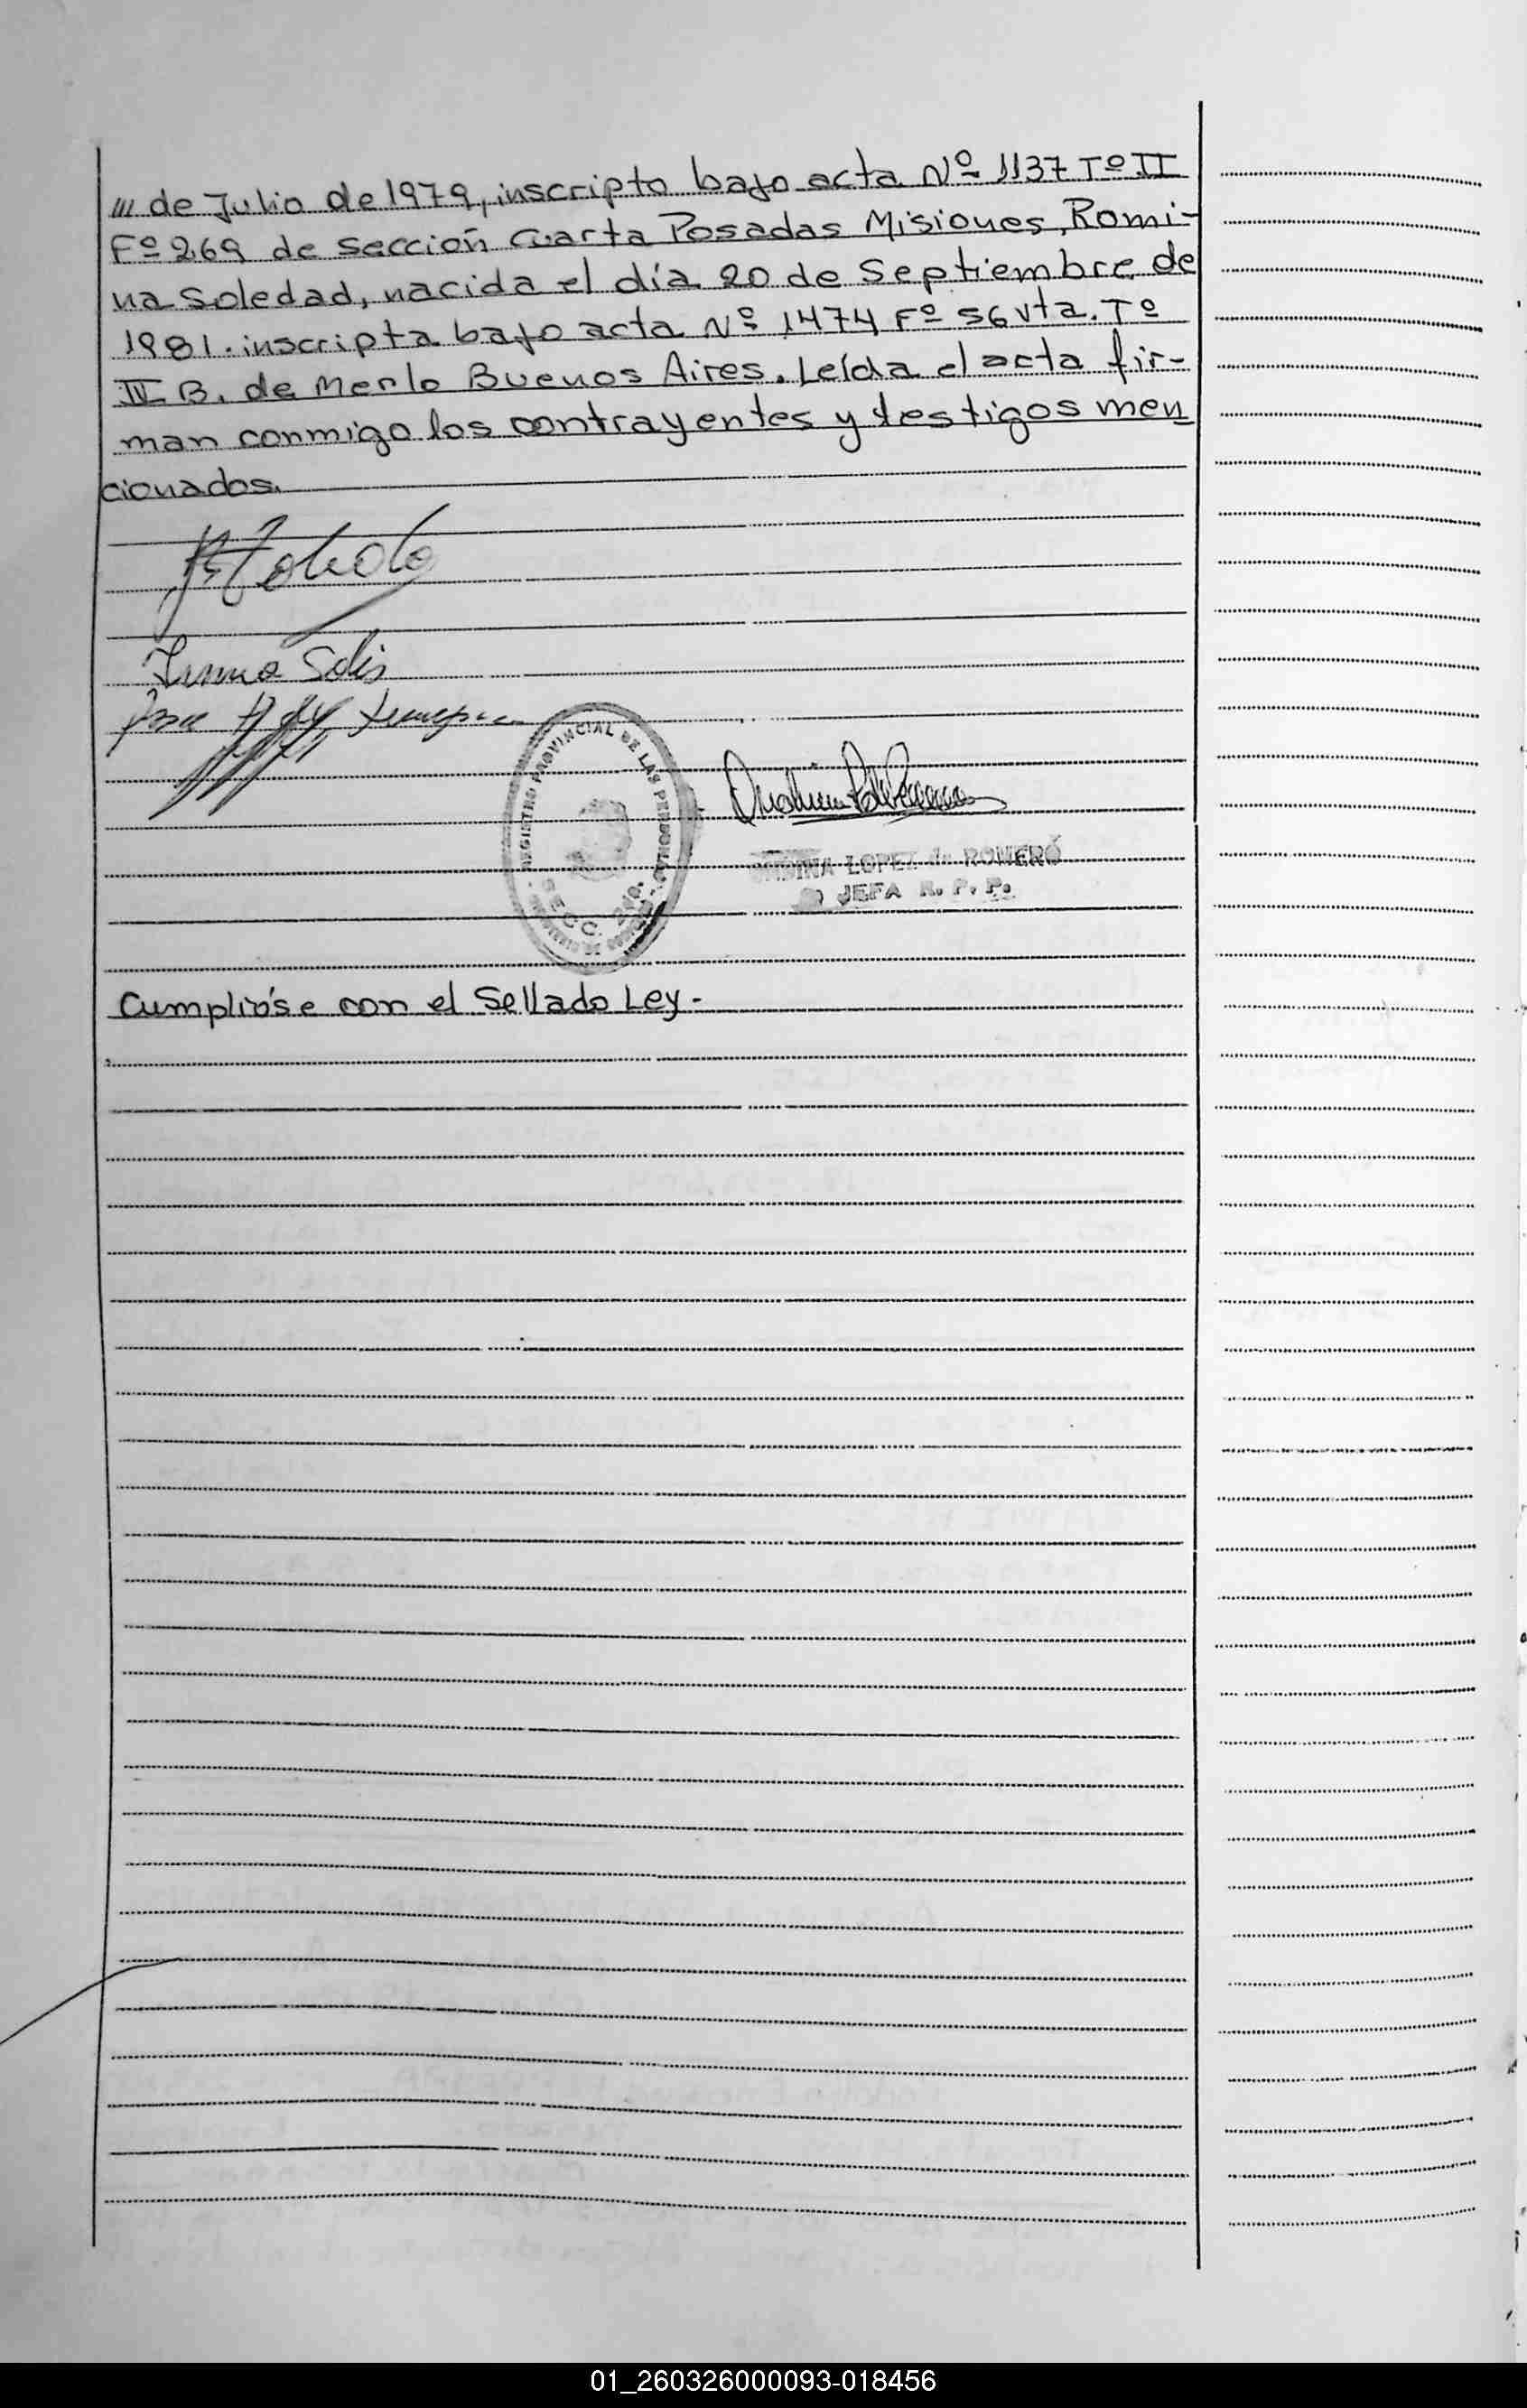 /// de Julio de 1979, inscripto bajo acta Nº 1137 Tº II
Fº 269 de sección cuarta Posadas Misiones, Romi-
na Soledad, nacida el día 20 de Septiembre de
1981. inscripta bajo acta Nº 1474 Fº 56 vta. Tº
III B. de Merlo Buenos Aires. Leída el acta fir-
man conmigo los contrayentes y testigos men
cionados.
Irma Solis
REGISTRO PROVINCIAL DE LAS PERSONAS
SECC. 2da.
LOPEZ de ROMERO
JEFA R. P. P.
Cumplióse con el Sellado Ley.-
01_260326000093-018456